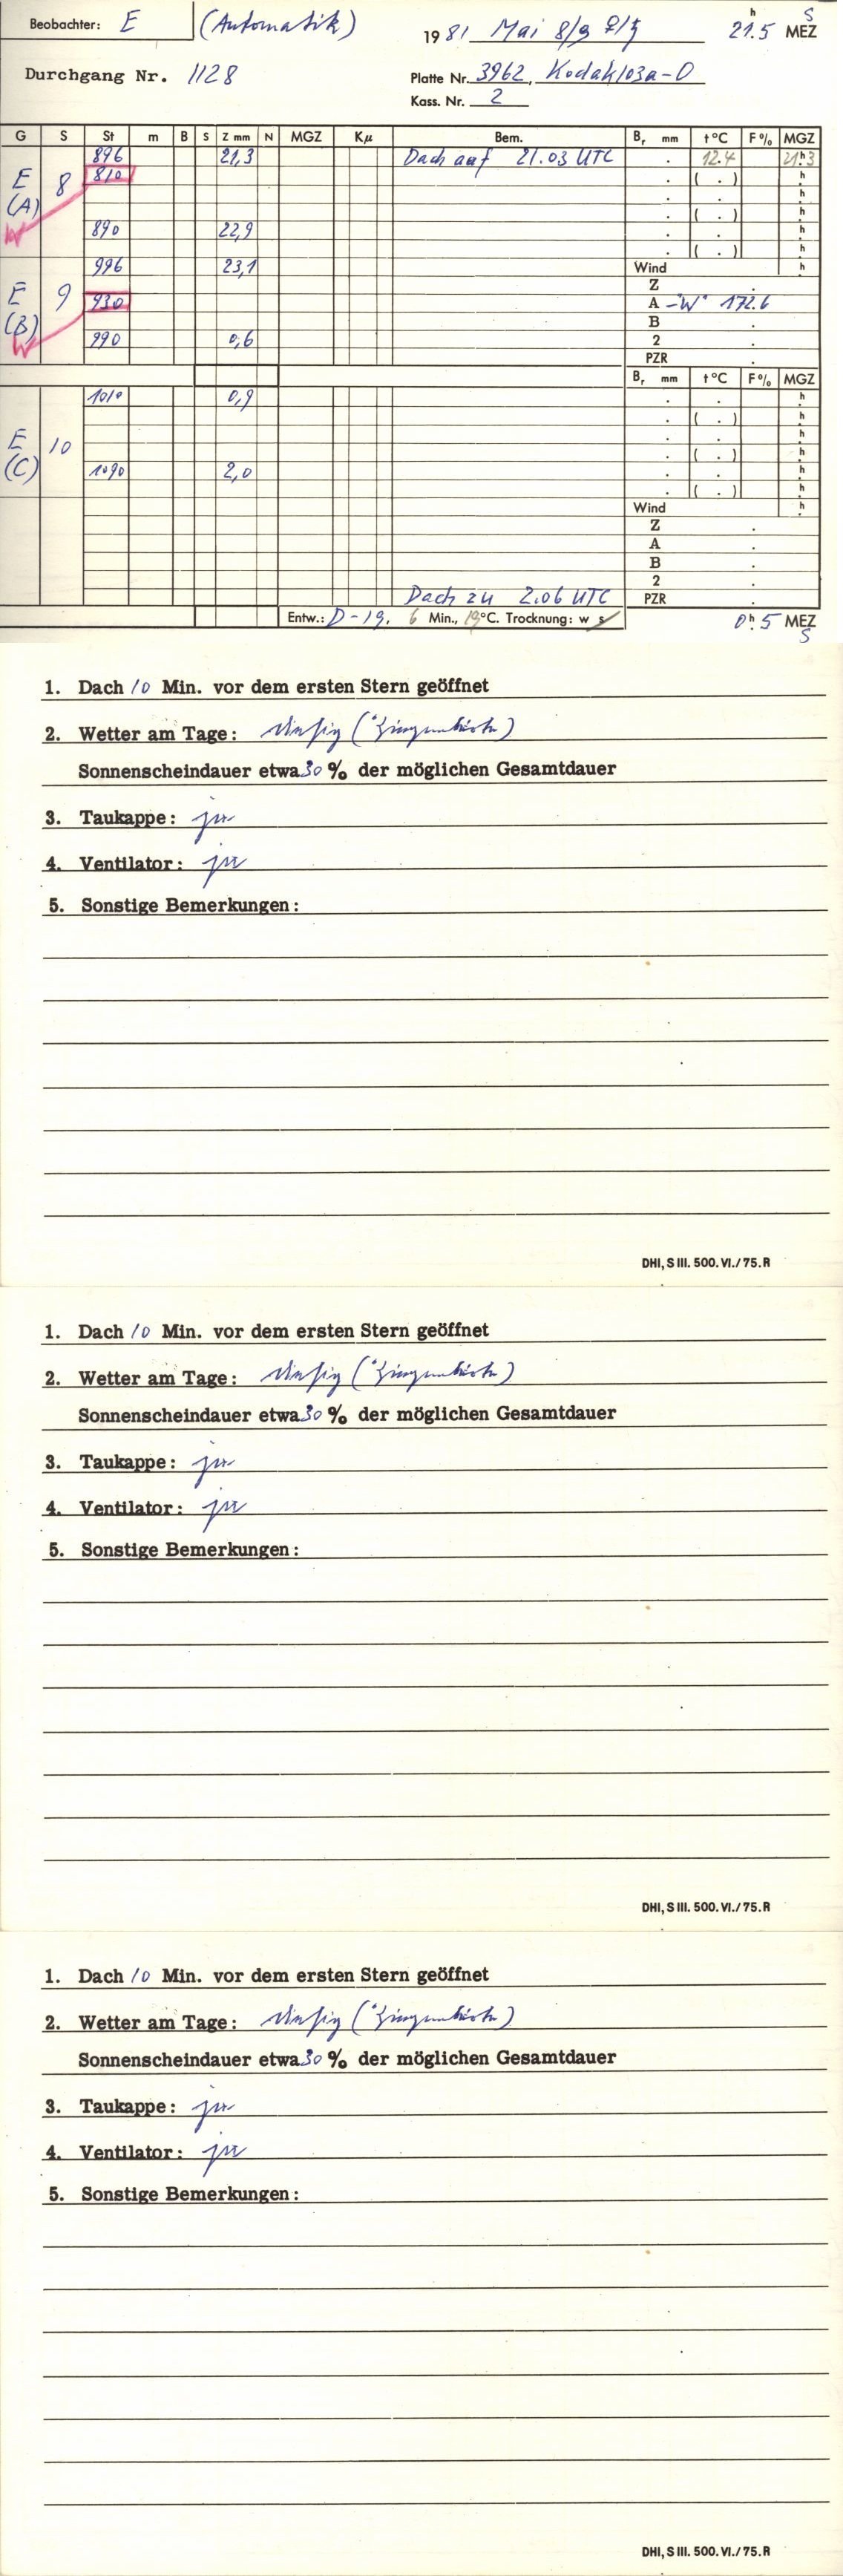 Beobachter: E (Automatik) 1981 Mai 8/9 ♀/♄ 21.5 h MEZ S
Durchgang Nr. 1128 Platte Nr. 3962, Kodak 103a-O
Kass. Nr. 2
G S St m B S Z mm N MGZ Kμ Bem. Br mm t°C F% MGZ
896 21,3 Dach auf 21.03 UTC . 12.4 21h3
E 8 810 . ( . ) h
(A) . . h
W . ( . ) h
890 22,9 . . h
. ( . ) h
996 23,1 Wind h
E 9 Z .
930 A -"W" 172.6
(B) B .
W 990 0,6 2 .
PZR .
Br mm t°C F% MGZ
1010 0,9 . . h
. ( . ) h
E 10 . . h
(C) . ( . ) h
1090 2,0 . . h
. ( . ) h
Wind h
Z .
A .
B .
2 .
Dach zu 2.06 UTC PZR .
Entw.: D-19. 6 Min., 19°C. Trocknung: w s 0h.5 MEZ
S
1. Dach 10 Min. vor dem ersten Stern geöffnet
2. Wetter am Tage:
Sonnenscheindauer etwa 30 % der möglichen Gesamtdauer
3. Taukappe: ja
4. Ventilator: ja
5. Sonstige Bemerkungen:
DHI, S III. 500. VI./75. R
1. Dach 10 Min. vor dem ersten Stern geöffnet
2. Wetter am Tage:
Sonnenscheindauer etwa 30 % der möglichen Gesamtdauer
3. Taukappe: ja
4. Ventilator: ja
5. Sonstige Bemerkungen:
DHI, S III. 500. VI./75. R
1. Dach 10 Min. vor dem ersten Stern geöffnet
2. Wetter am Tage:
Sonnenscheindauer etwa 30 % der möglichen Gesamtdauer
3. Taukappe: ja
4. Ventilator: ja
5. Sonstige Bemerkungen:
DHI, S III. 500. VI./75. R